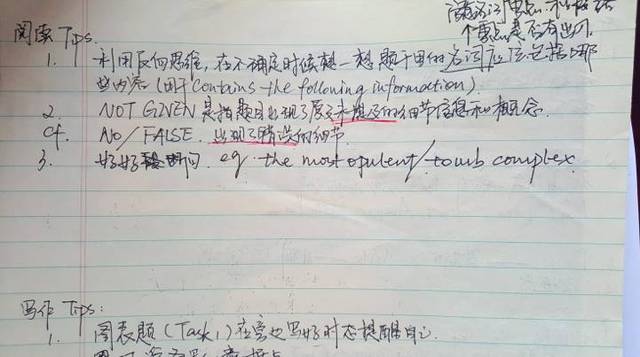 个重点是否有出入
阅读 Tips.
1. 利用反向思维,在不确定时候想一想题干里的名词应该包括哪
些内容(用于 contains the following information).
2. NOT GIVEN 是指题目出现了原文未提及的细节信息和概念.
cf. NO/FALSE. 出现了错误的细节.
3. 好好 eg. the most opulent/tomb complex
写作 Tips:
1. 图表题(Task1)在旁边写好时态提醒自己